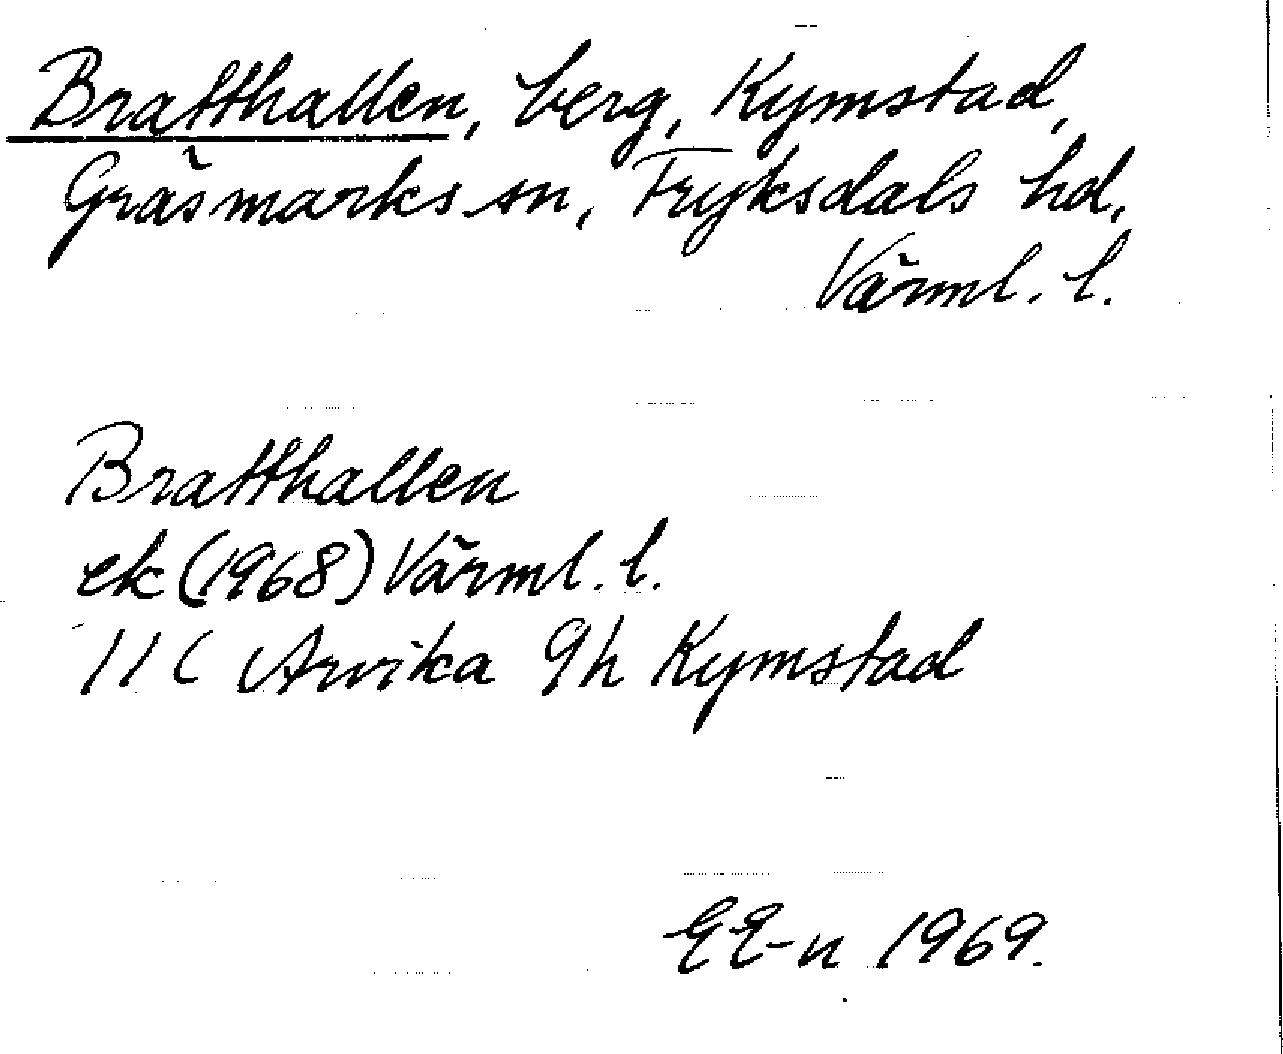 Bratthallen, berg, Kymstad,
Gräsmarks sn, Fryksdals hd,
Värml. l.
Bratthallen
ek (1968) Värml. l.
11 C Arvika 9h Kymstad
EE-n 1969.